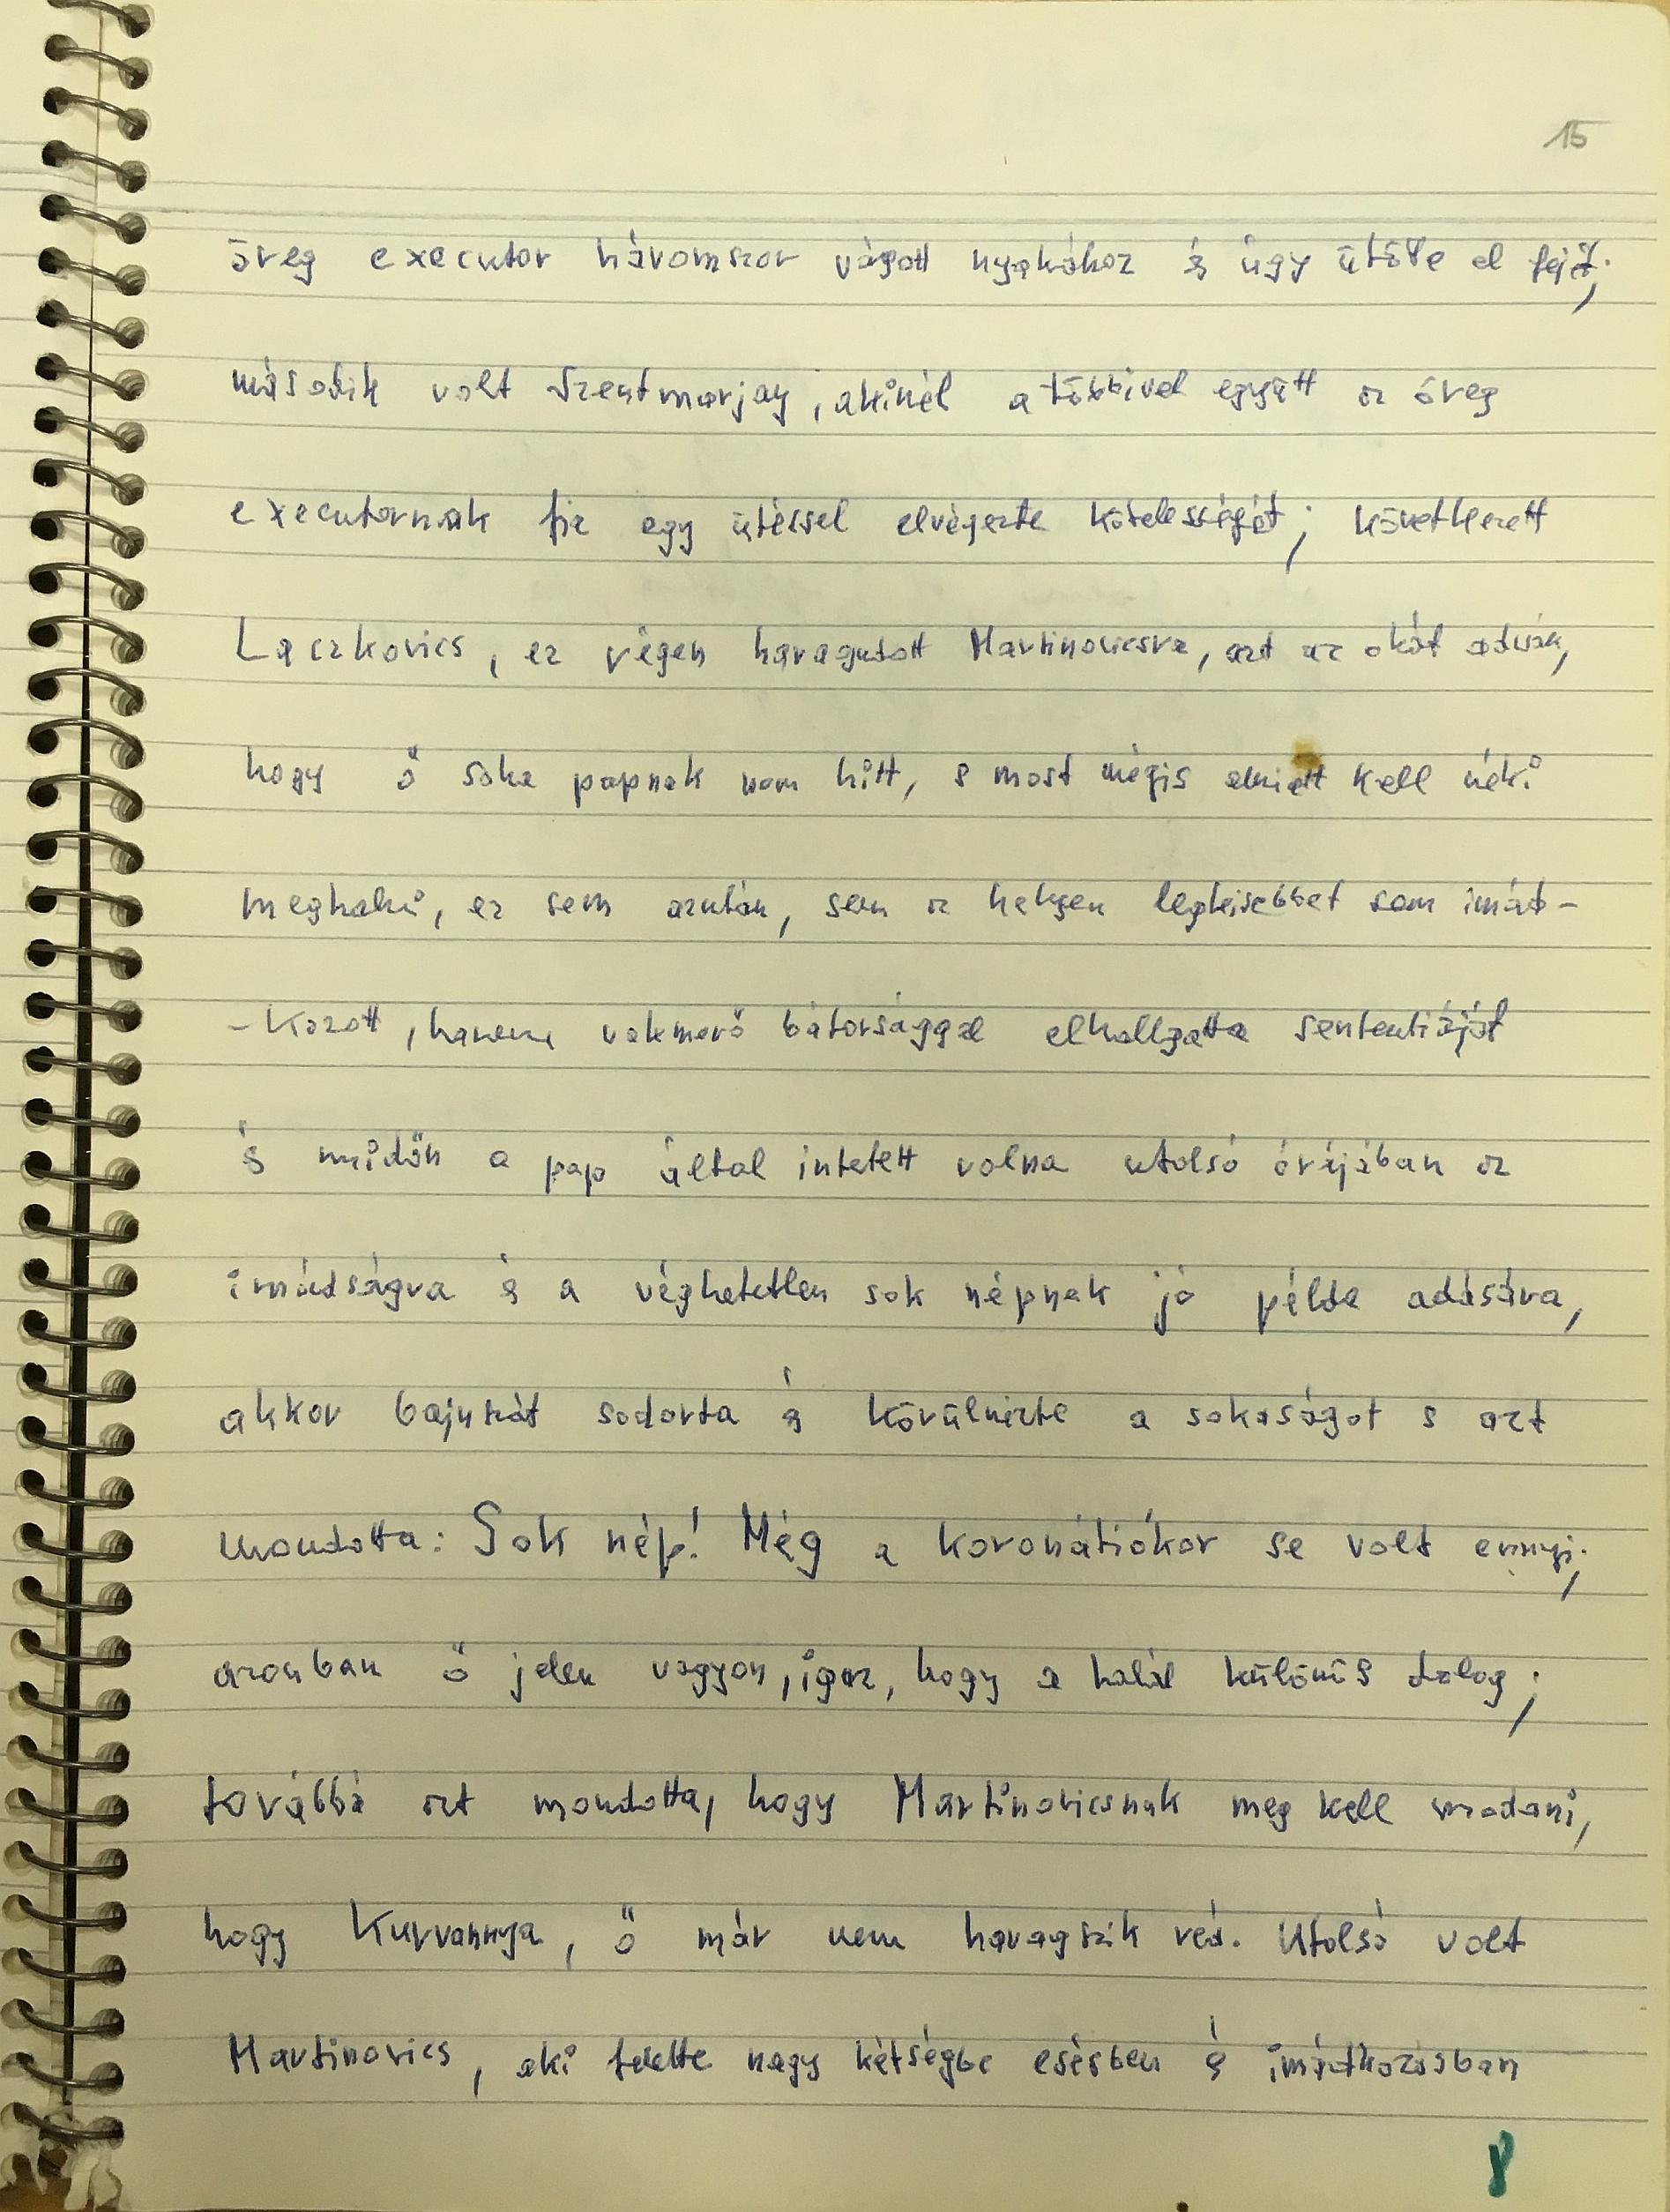 15
öreg executor háromszor vágott nyakához és úgy ütötte el fejét;
második volt Szentmarjay, akinél a többivel együtt az öreg
executornak fia egy ütéssel elvégezte kötelességét; következett
Laczkovics, ez végen haragudott Martinovicsra, azt az okát adván,
hogy ő soha papnak nem hitt, s most mégis amiatt kell néki
meghalni, ez sem azután, sem a helyen legkisebbet sem imád-
-kozott, hanem vakmerő bátorsággal elhallgatta sententiáját
és midőn a pap által intetett volna utolsó órájában az
imádságra és a véghetetlen sok népnek jó példa adására,
akkor bajuszát sodorta és körülnézte a sokaságot s azt
mondotta: Sok nép! Még a koronátiókor se volt ennyi;
azonban ő jelen vagyon, igaz, hogy a halál különös dolog;
továbbá azt mondotta, hogy Martinovicsnak meg kell mondani,
hogy Kurvannya, ő már nem haragszik reá. Utolsó volt
Martinovics, aki felette nagy kétségbe esésben és imádkozásban
8